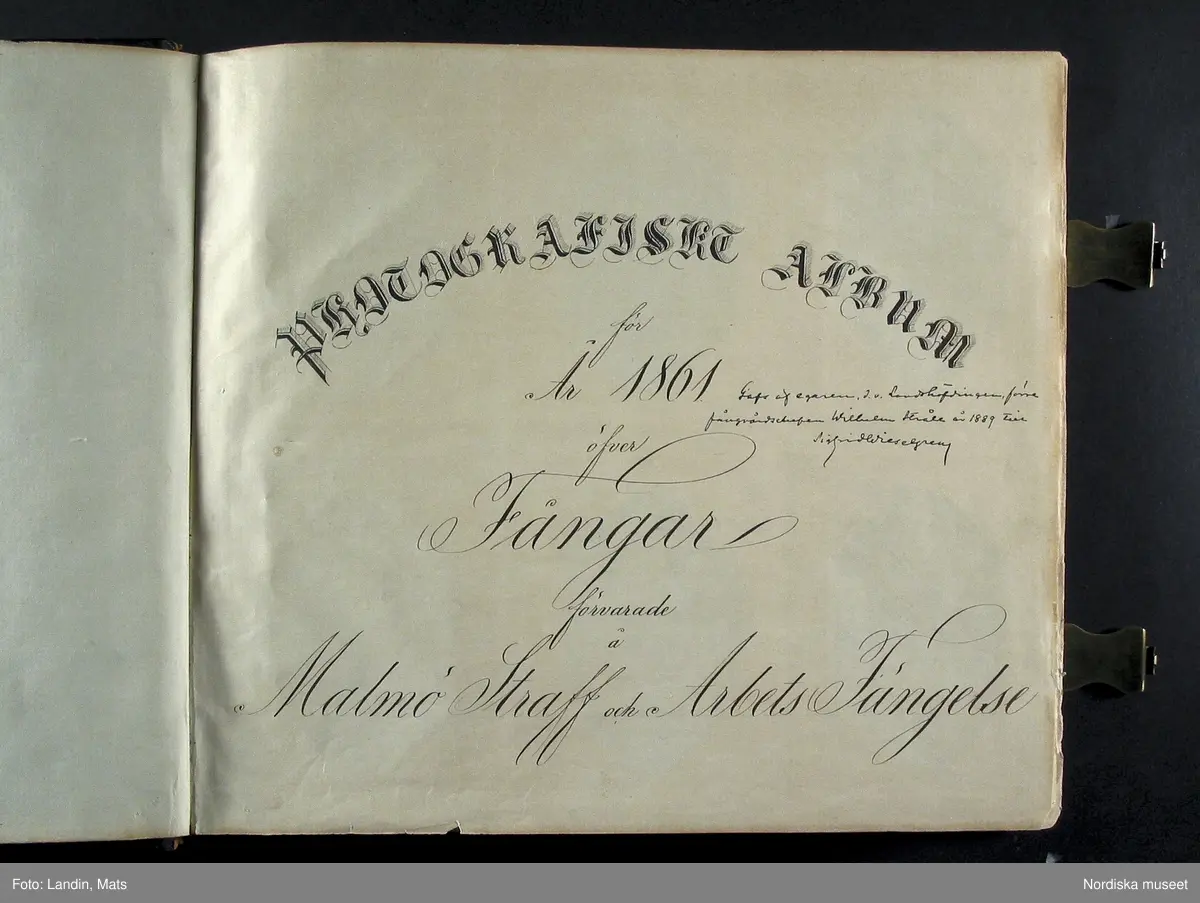 PHOTOGRAFISKT ALBUM
för
År 1861
Gafs af egaren, d.v. Landshöfdingen, förre
fångvårdschefen Wilhelm Stråle år 1889 till
Sigfrid Wieselgren
öfver
Fångar
förvarade
å
Malmö Straff och Arbets Fängelse
Foto: Landin, Mats
Nordiska museet